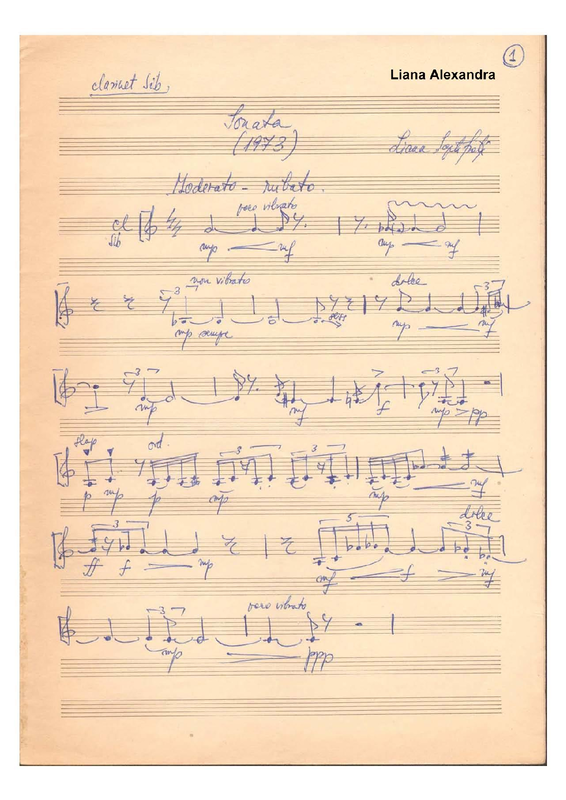 1
Liana Alexandra
clarinet Sib,
Sonata
(1973)
Moderato - rubato.
poco vibrato
cl
Sib
mp mf mp mf
non vibrato dolce
3 3
mp sempre mp mf
3 3
mp mf f mp > pp
slap ord.
3 3
p mp p mp mp mf
3 5 dolce 3
ff f mp mf f mf
3 poco vibrato
mp ppp